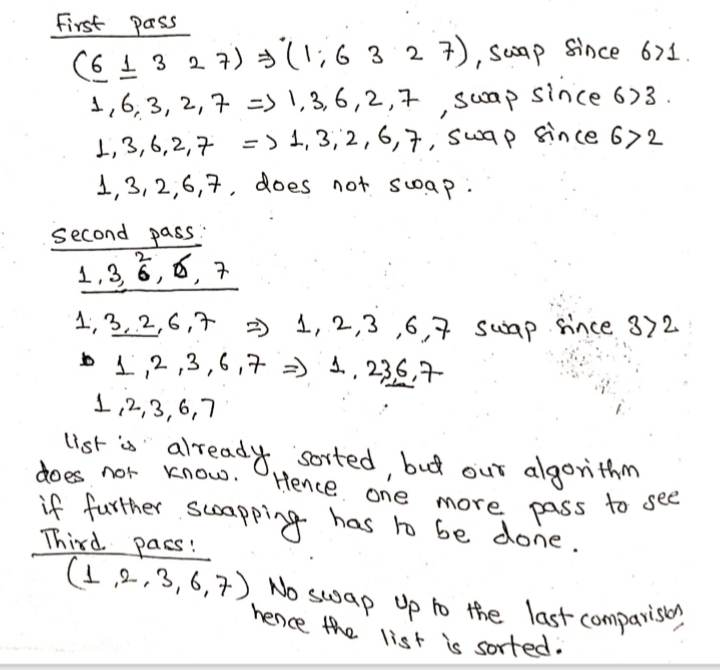 First pass
(6 1 3 2 7) ⇒ (1, 6 3 2 7), swap since 6>1.
1, 6, 3, 2, 7 => 1, 3, 6, 2, 7, swap since 6>3.
1, 3, 6, 2, 7 => 1, 3, 2, 6, 7, swap since 6>2
1, 3, 2, 6, 7. does not swap.
Second pass:
1, 3, 2, 6, 7
1, 3, 2, 6, 7 ⇒ 1, 2, 3, 6, 7 swap since 3>2
1, 2, 3, 6, 7 ⇒ 1, 2 3, 6, 7
1, 2, 3, 6, 7
list is already sorted, but our algorithm
does not know. Hence one more pass to see
if further swapping has to be done.
Third pass:
(1, 2, 3, 6, 7) No swap up to the last comparision
hence the list is sorted.